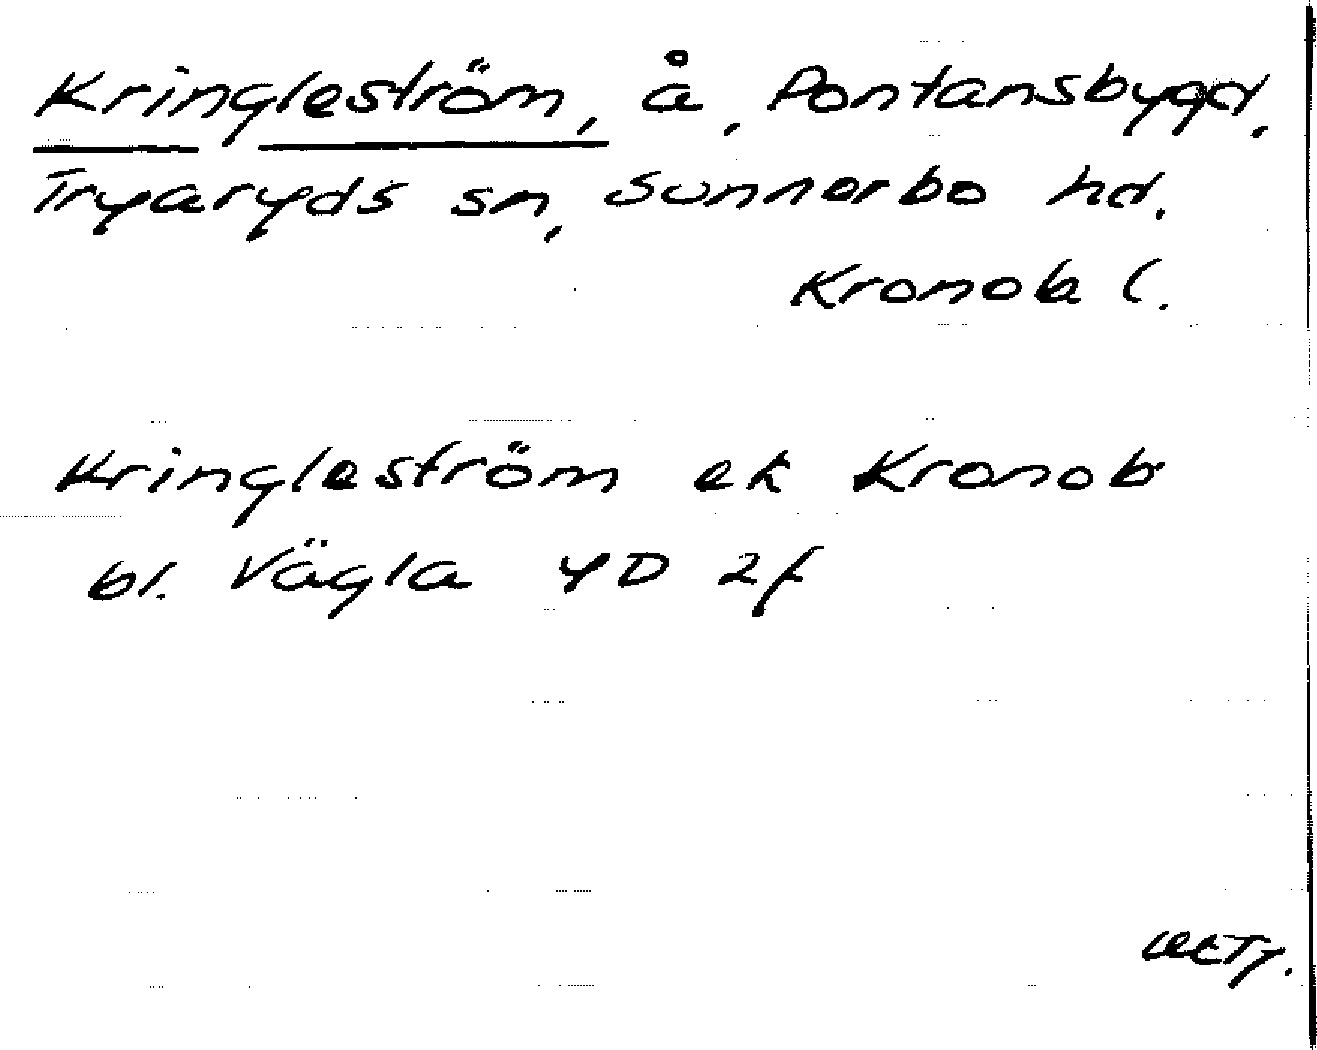 Kringleström, å, Pontansbygd,
Tryaryds sn, Sunnerbo hd.
Kronob l.
Kringleström ek Kronob
bl. Vägla 4D 2f